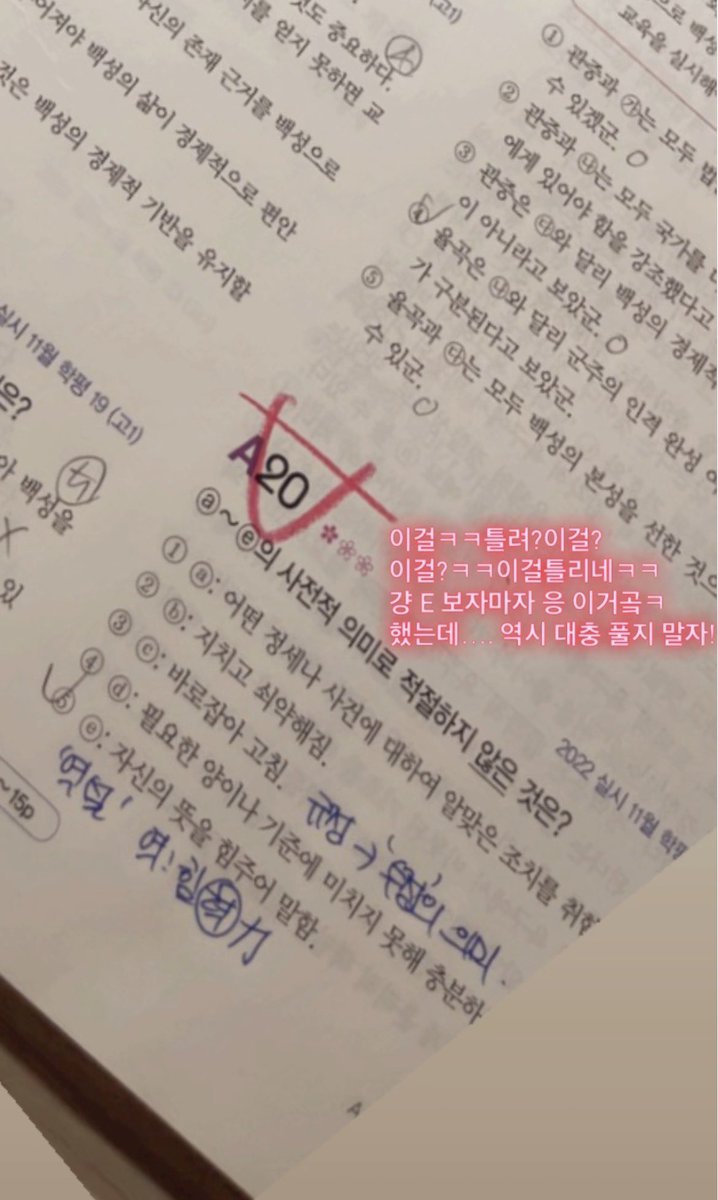 것도 중요하다.
를 얻지 못하면 교
자신의 존재 근거를 백성으로
어져야 백성의 삶이 경제적으로 편안
것은 백성의 경제적 기반을 유지할
실시 11월 학평 19 (고1)
은?
백성을
있
~15p
(고1)
교육을 실시해
① 관중과 ㉮는 모두 법
수 있겠군.
② 관중과 ㉯는 모두 국가를
에게 있어야 함을 강조했다고
③ 관중은 ㉰와 달리 백성의 경제적
이 아니라고 보았군.
④ 율곡은 ㉯와 달리 군주의 인격 완성
가 구분된다고 보았군.
⑤ 율곡과 ㉰는 모두 백성의 본성을 선한 것으
수 있군.
A20
2022 실시 11월 학평
ⓐ~ⓔ의 사전적 의미로 적절하지 않은 것은?
① ⓐ: 어떤 정세나 사건에 대하여 알맞은 조치를 취함
② ⓑ: 지치고 쇠약해짐.
③ ⓒ: 바로잡아 고침.
④ ⓓ: 필요한 양이나 기준에 미치지 못해 충분하
⑤ ⓔ: 자신의 뜻을 힘주어 말함.
의 의미.
'역설' 역: 힘 력 力
이걸ㅋㅋ틀려?이걸?
이걸?ㅋㅋ이걸틀리네ㅋㅋ
걍 E 보자마자 응 이거곸ㅋ
했는데.... 역시 대충 풀지 말자!